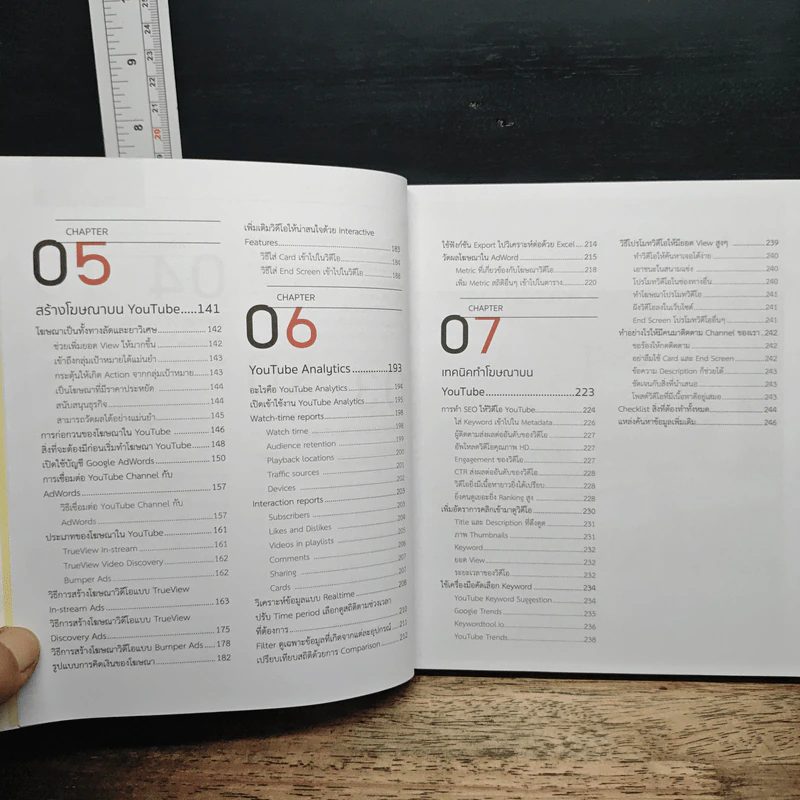 9
8
25
24
23
22
21
20
CHAPTER
05
สร้างโฆษณาบน YouTube.....141
โฆษณาเป็นทั้งทางลัดและยาวิเศษ 142
ช่วยเพิ่มยอด View ให้มากขึ้น 142
เข้าถึงกลุ่มเป้าหมายได้แม่นยำ 143
กระตุ้นให้เกิด Action จากกลุ่มเป้าหมาย 143
เป็นโฆษณาที่มีราคาประหยัด 144
สนับสนุนธุรกิจ 144
สามารถวัดผลได้อย่างแม่นยำ 145
การก่อกวนของโฆษณาใน YouTube 146
สิ่งที่จะต้องมีก่อนเริ่มทำโฆษณา YouTube 148
เปิดใช้บัญชี Google AdWords 150
การเชื่อมต่อ YouTube Channel กับ
AdWords 157
วิธีเชื่อมต่อ YouTube Channel กับ
AdWords 157
ประเภทของโฆษณาใน YouTube 161
TrueView In-stream 161
TrueView Video Discovery 162
Bumper Ads 162
วิธีการสร้างโฆษณาวิดีโอแบบ TrueView
In-stream Ads 163
วิธีการสร้างโฆษณาวิดีโอแบบ TrueView
Discovery Ads 175
วิธีการสร้างโฆษณาวิดีโอแบบ Bumper Ads 178
รูปแบบการคิดเงินของโฆษณา 182
เพิ่มเติมวิดีโอให้น่าสนใจด้วย Interactive
Features 183
วิธีใส่ Card เข้าไปในวิดีโอ 184
วิธีใส่ End Screen เข้าไปในวิดีโอ 188
CHAPTER
06
YouTube Analytics 193
อะไรคือ YouTube Analytics 194
เปิดเข้าใช้งาน YouTube Analytics 195
Watch-time reports 198
Watch time 198
Audience retention 199
Playback locations 200
Traffic sources 201
Devices 202
Interaction reports 203
Subscribers 203
Likes and Dislikes 204
Videos in playlists 205
Comments 206
Sharing 207
Cards 207
วิเคราะห์ข้อมูลแบบ Realtime 208
ปรับ Time period เลือกดูสถิติตามช่วงเวลา
ที่ต้องการ 210
Filter ดูเฉพาะข้อมูลที่เกิดจากแต่ละอุปกรณ์ 211
เปรียบเทียบสถิติด้วยการ Comparison 212
ใช้ฟังก์ชัน Export ไปวิเคราะห์ต่อด้วย Excel 214
วัดผลโฆษณาใน AdWord 215
Metric ที่เกี่ยวข้องกับโฆษณาวิดีโอ 218
เพิ่ม Metric สถิติอื่นๆ เข้าไปในตาราง 220
CHAPTER
07
เทคนิคทำโฆษณาบน
YouTube 223
การทำ SEO ให้วิดีโอ YouTube 224
ใส่ Keyword เข้าไปใน Metadata 226
ผู้ติดตามส่งผลต่ออันดับของวิดีโอ 227
อัพโหลดวิดีโอคุณภาพ HD 227
Engagement ของวิดีโอ 227
CTR ส่งผลต่ออันดับของวิดีโอ 228
วิดีโอยิ่งมีเนื้อหายาวยิ่งได้เปรียบ 228
ยิ่งคนดูเยอะยิ่ง Ranking สูง 228
เพิ่มอัตราการคลิกเข้ามาดูวิดีโอ 230
Title และ Description ที่ดึงดูด 231
ภาพ Thumbnails 231
Keyword 232
ยอด View 232
ระยะเวลาของวิดีโอ 232
ใช้เครื่องมือคัดเลือก Keyword 234
YouTube Keyword Suggestion 234
Google Trends 235
Keywordtool.io 236
YouTube Trends 238
วิธีโปรโมทวิดีโอให้มียอด View สูงๆ 239
ทำวิดีโอให้ค้นหาเจอได้ง่าย 240
เอาชนะในสนามแข่ง 240
โปรโมทวิดีโอในช่องทางอื่น 240
ทำโฆษณาโปรโมทวิดีโอ 241
ฝังวิดีโอลงในเว็บไซต์ 241
End Screen โปรโมทวิดีโออื่นๆ 241
ทำอย่างไรให้มีคนมาติดตาม Channel ของเรา 242
ขอร้องให้กดติดตาม 242
อย่าลืมใช้ Card และ End Screen 242
ข้อความ Description ก็ช่วยได้ 243
ชัดเจนกับสิ่งที่นำเสนอ 243
โพสต์วิดีโอที่มีเนื้อหาดีอยู่เสมอ 243
Checklist สิ่งที่ต้องทำทั้งหมด 244
แหล่งค้นหาข้อมูลเพิ่มเติม 246